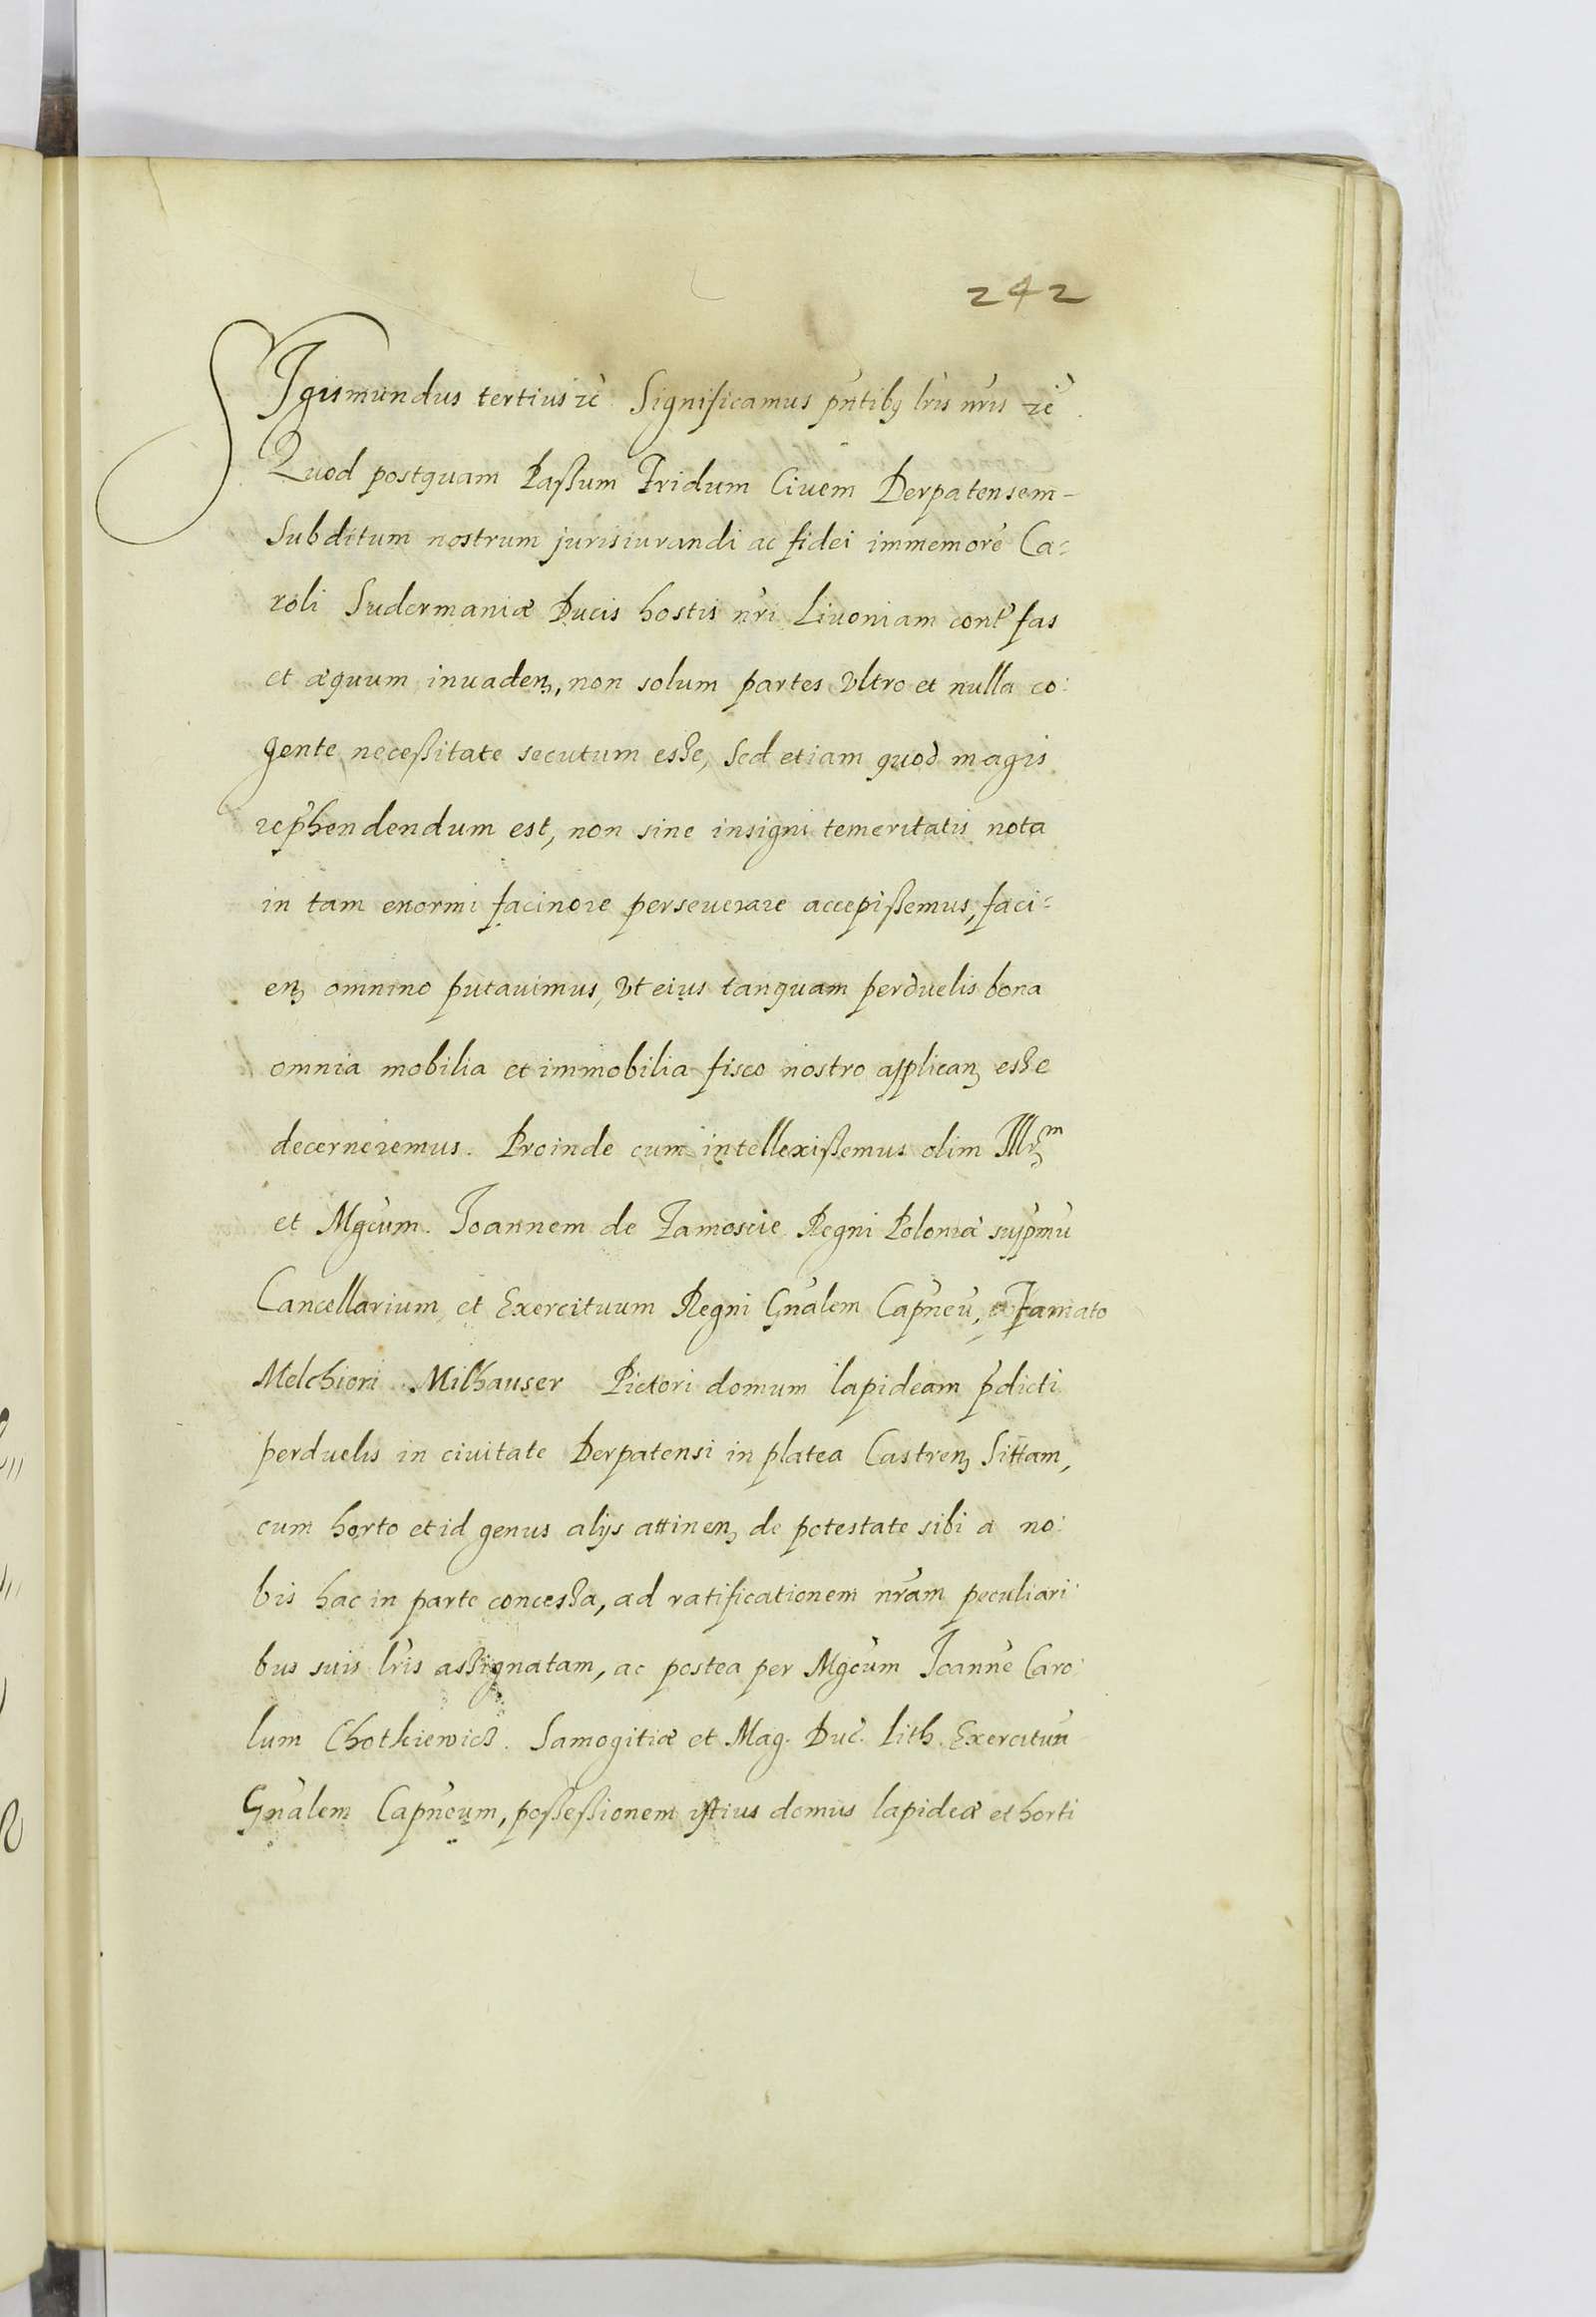 242
SIgismundus tertius ꝛc̀ Significamus pn̄tibꝫ lr̄is nr̄is ꝛc̀.
Quod postquam Paßum Fridum Ciuem Derpatensem-
Subditum nostrum jurisiurandi ac fidei immemorē Ca=
roli Sudermaniæ Ducis hostis nr̄i Liuoniam contr̄ fas
et æquum inuadenꝫ, non solum partes Vltro et nulla co:
gente necessitate secutum esse, Sed etiam quod magis
rep̄hendendum est, non sine insigni temeritatis nota
in tam enormi facinore perseuerare accepißemus, faci=
enꝫ omnino putauimus, Vt eius tanquam perduelis bona
omnia mobilia et immobilia fisco nostro applicanꝫ esse
decerneremus. Proinde cum intellexißemus olim Illrꝫᵐ
et Mgc̄um. Joannem de Zamoscie Regni Poloniæ supmū
Cancellarium et Exercituum Regni Gn̄alem Capn̄eū, Famato
Melchiori Milhauser Pictori domum lapideam p̄dicti
perduelis in ciuitate Derpatensi in platea Castrenꝫ Sittam,
cum horto et id genus alijs attinenꝫ de potestate sibi a no:
bis hac in parte concessa, ad ratificationem nr̄am peculiari:
bus suis lr̄is assignatam, ac postea per Mgc̄um Joannē Caro:
lum Chotkiewicz. Samogitiæ et Mag. Duc̄. Lith. Exercituū
Gn̄alem Capn̄eum, poßeßionem istius domus lapideæ et horti